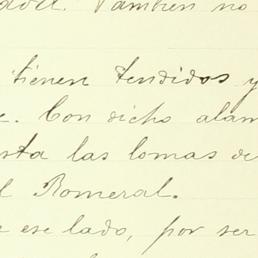 También no
tienen tendidos y
Con dicho alam
las lomas de
Romeral.
ese lado, por ser